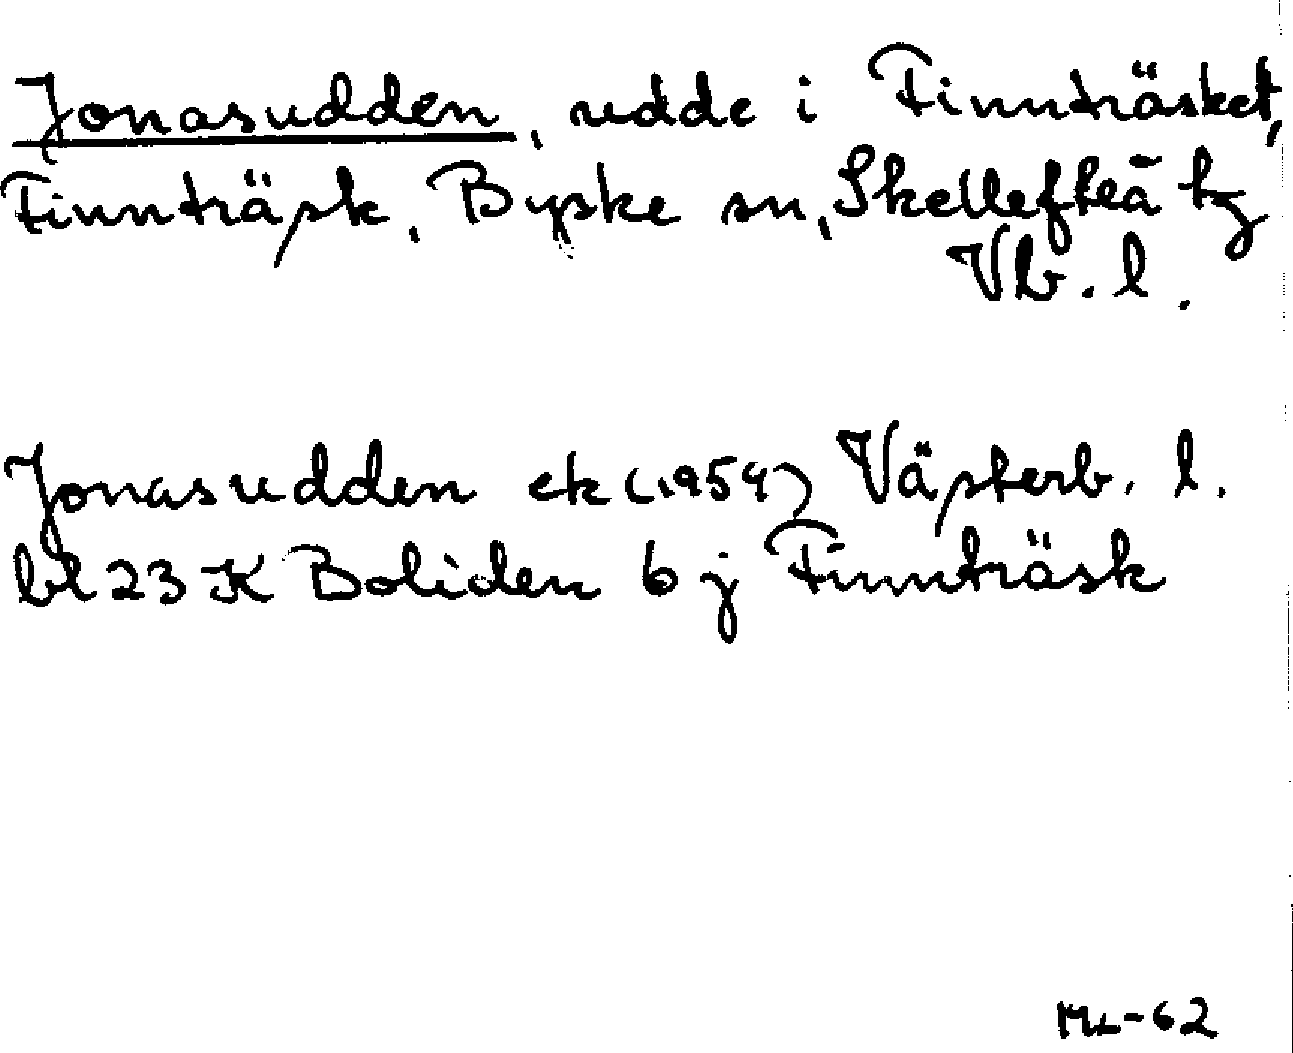 Jonasudden, udde i Finnträsket,
Finnträsk, Byske sn, Skellefteå tg
Vb. l.
Jonasudden ek (1959) Västerb. l.
bl 23 K Boliden 6 j Finnträsk
ML-62